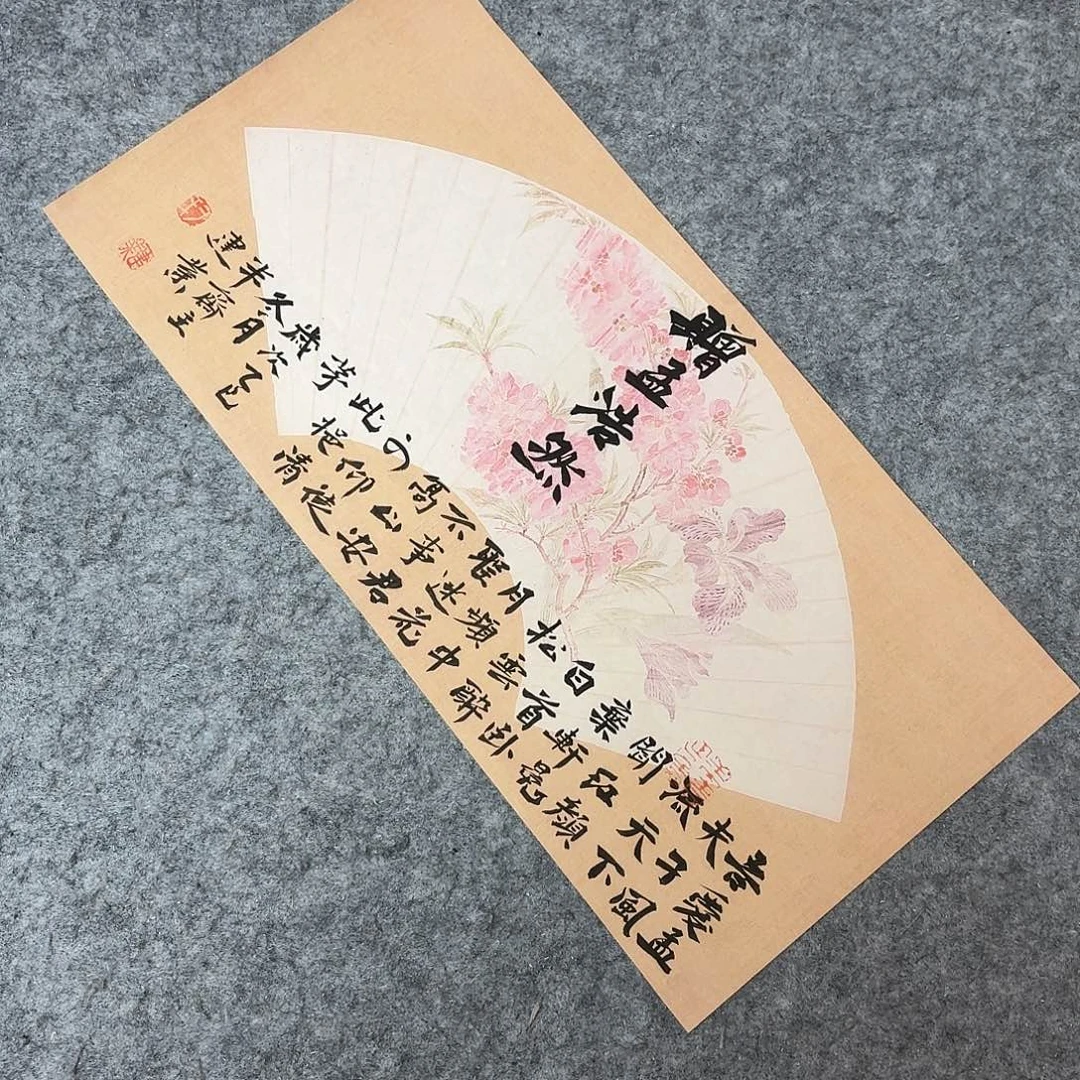 贈孟浩然
吾愛孟
夫子風
流天下
聞紅顏
棄軒冕
白首臥
松雲醉
月頻中
聖迷花
不事君
高山安
可仰徒
此挹清
芬
歲次乙巳
冬月
半齋主
建業